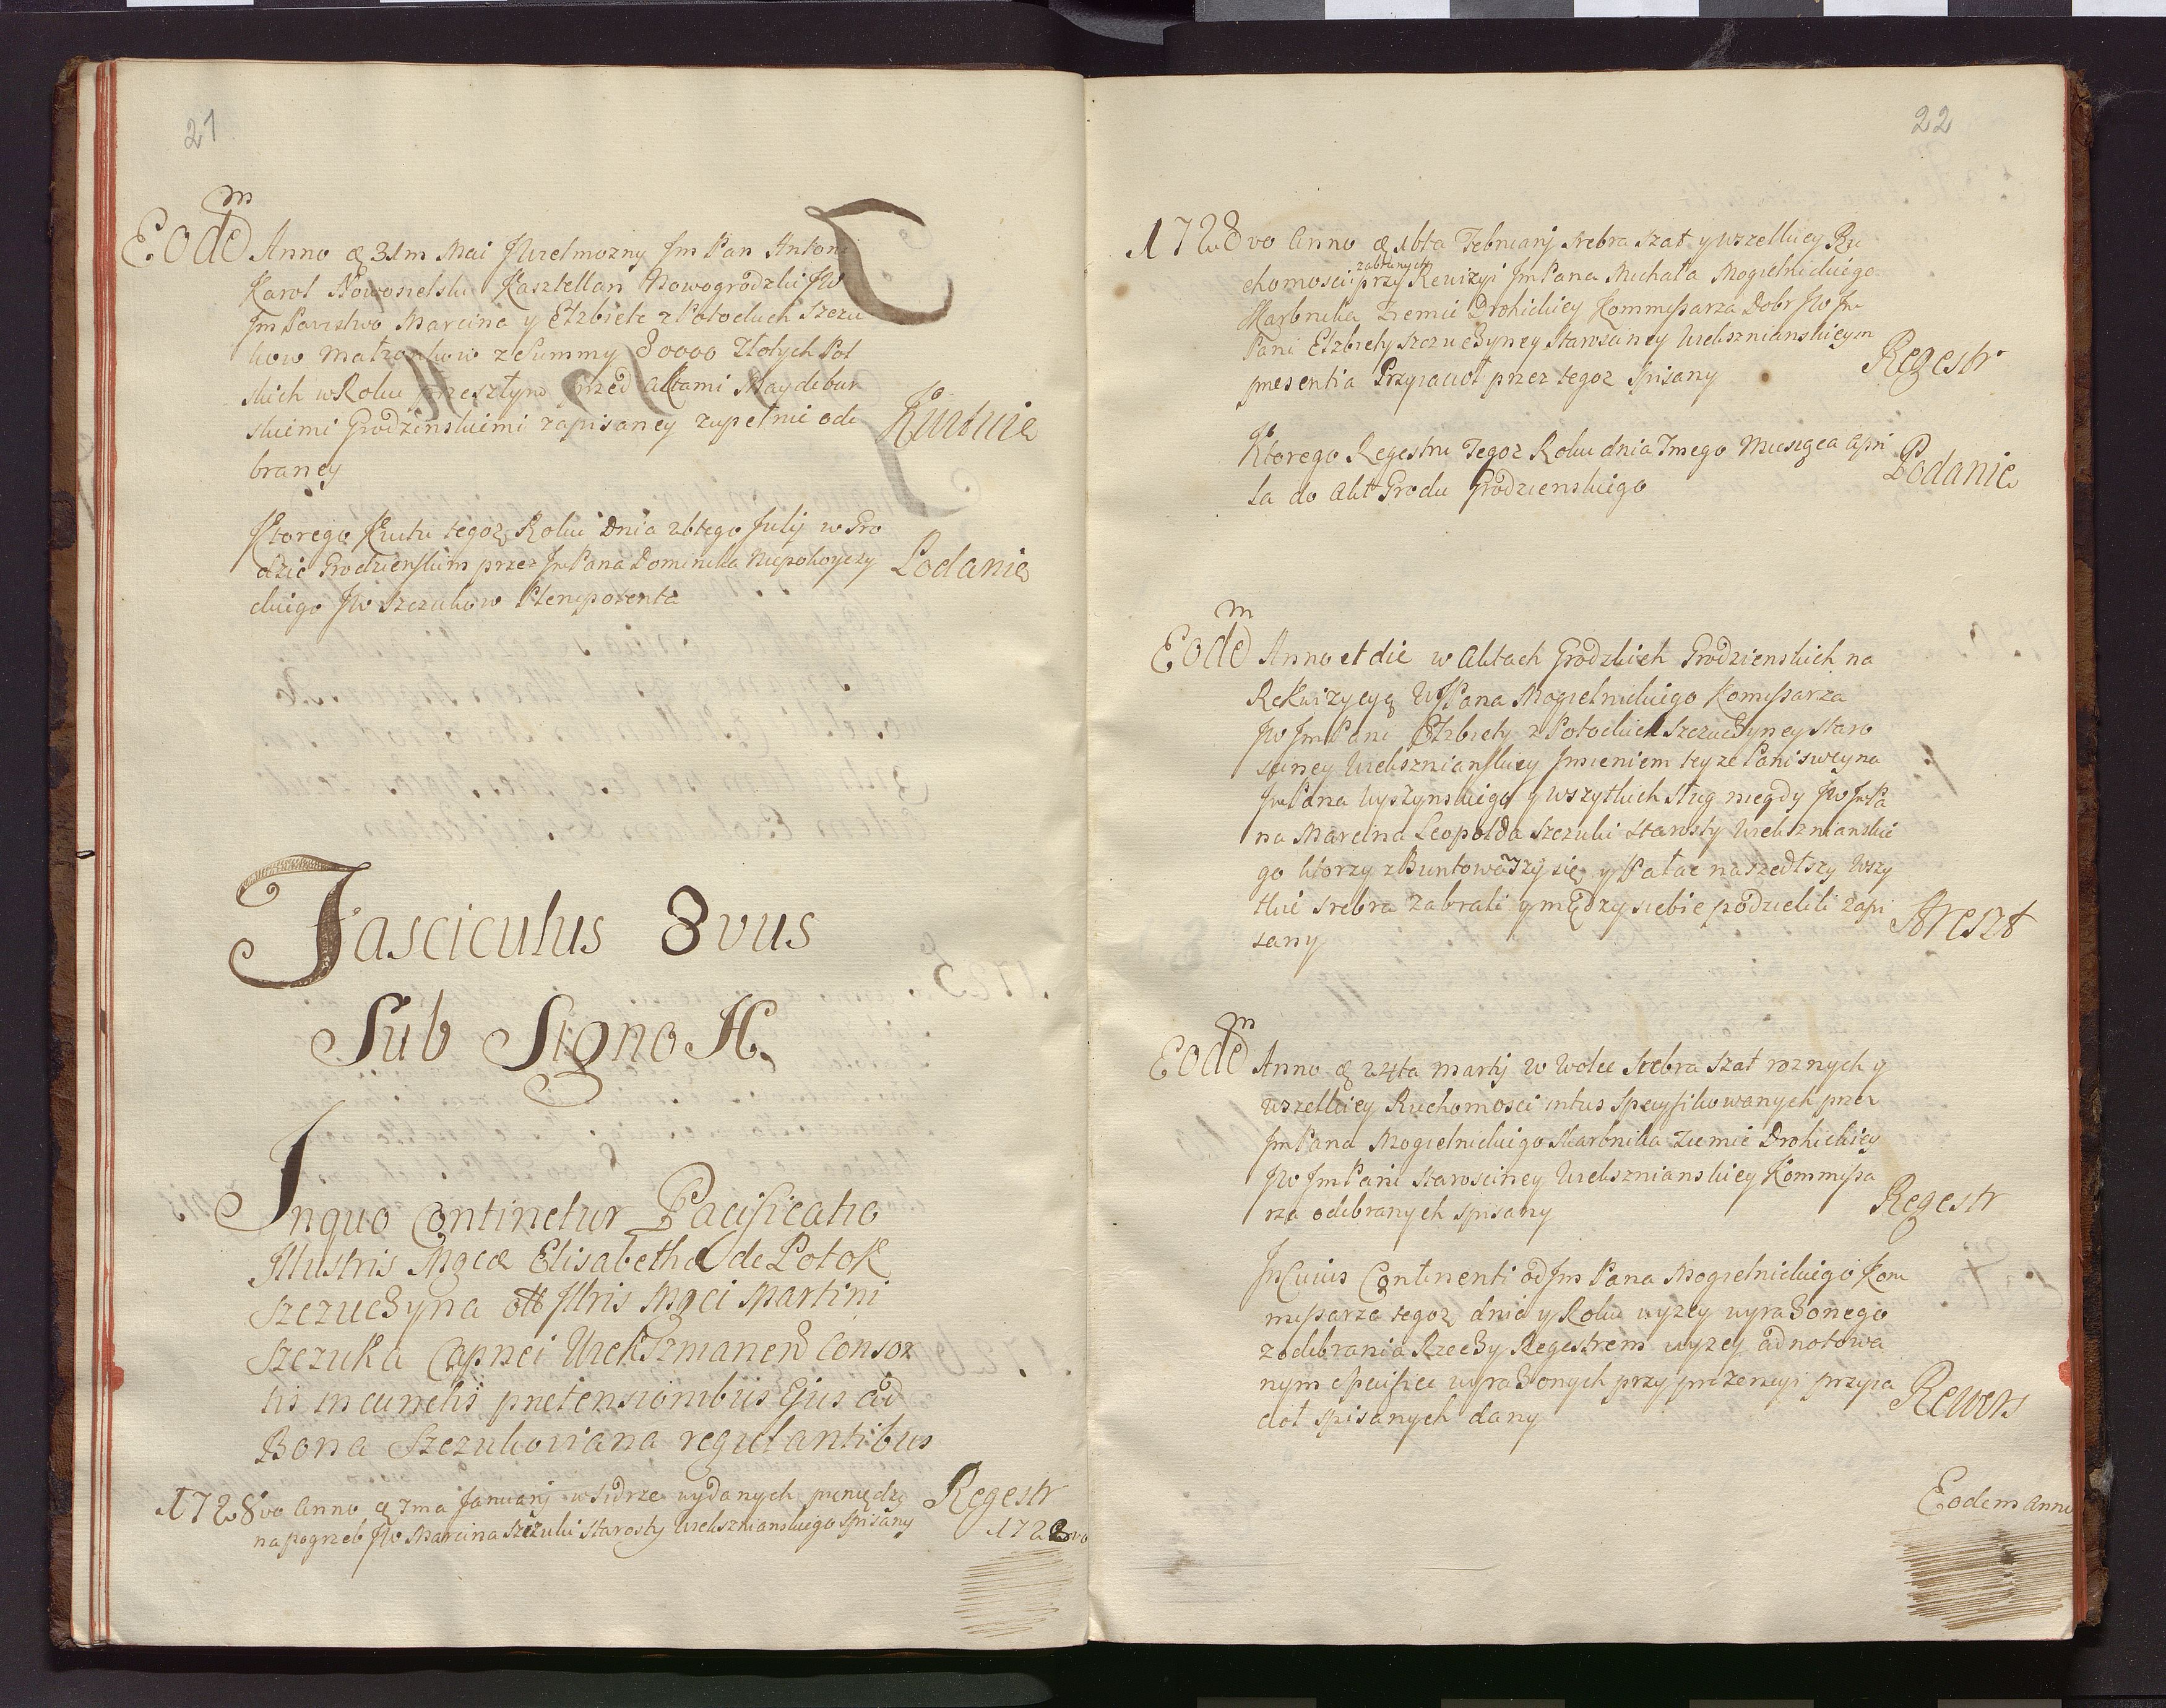 21
Eodem Anno & 31m Mai JWielmozny Jm Pan Antoni
Karol Nowosielski Kasztellan Nowogrodzki JW
Jm Panstwo Marcina y Elzbiete z Potockich Szczu
kow Matzonkow z Summy 80000 Złotych Pol
skich w Roku przeszłym przed Aktami Maydebur
skiemi Grodzinskiemi zapisaney zupełnie ode
braney
Kwituie
Ktorego Kwitu tegoz Roku Dnia 26tego Julij w Gro
dzie Grodzienskim przez Jm Pana Dominika Niepokoyczy
ckiego JW Szczukow Plenipotenta
Podanie
Fasciculus 8vus
Sub Signo H.
Inquo Continetur Pacificatio
Illustris Mgcæ Elisabetha de Potok
Szczuczyna olt Illris Mgci Martini
Szczuka Capnei Wiekszmanen Consor
tis in cunctis pretensionibus Ejus ad
Bona Szczukoviana regulantibus
1728vo Anno & 7ma Januarij w Sidrze wydanych pieniędzy
na pogrzeb JW Marcina Szczuki Starosty Wiekszmianskiego spisany
Regestr
1728vo
22
1728vo Anno & 16ta Februarij srebra szat y wszelkiey Ru
chomosci zabranych przy Rewizyi Jm Pana Michała Mogielnickiego
Skarbnika Ziemie Drohickiey Kommissarza Dobr JW Jm
Pani Elzbiety Szczuczyney Starosciney Wiekszmianskiey in
presentia Przyiacioł przez tegoz spisany
Regestr
Ktorego Regestru Tegoz Roku dnia 7mego Miesiąca Apri
la do Akt Grodu Grodzienskiego
Podanie
Eodem Anno et die w Aktach Grodzkich Grodzienskich na
Rekwizycyą WJPana Mogielnickiego Komissarza
JW Jm Pani Elzbiety z Potockich Szczuczyney Staro
sciney Wiekszmianskiey Jmieniem teyze Pani swey na
Jm Pana Wyszynskiego y wszytkich sług niegdy JW Jm Pa
na Marcina Leopolda Szczuki Starosty Wiekszmianskie
go ktorzy zBuntowawszy się y Pałac naszedłszy wszy
tkie srebra zabrali y między siebie podzielili zapi
sany
Areszt
Eodem Anno & 24ta Martij w Wolce Srebra szat roznych y
wszelkiey Ruchomosci intus specyfikowanych przez
Jm Pana Mogielnickiego Skarbnika Ziemie Drohickiey
JW Jm Pani Starosciney Wiekszmianskiey Kommissa
rza odebranych spisany
Regestr
In Cuius Continenti od Jm Pana Mogielnickiego Kom
missarza tegoz dnia y Roku wyzey wyrazonego
z odebrania Rzeczy Regestrem wyzey adnotowa
nym specifice wyrazonych przy prezencyi przyia
cioł spisanych dany
Rewers
Eodem Anno